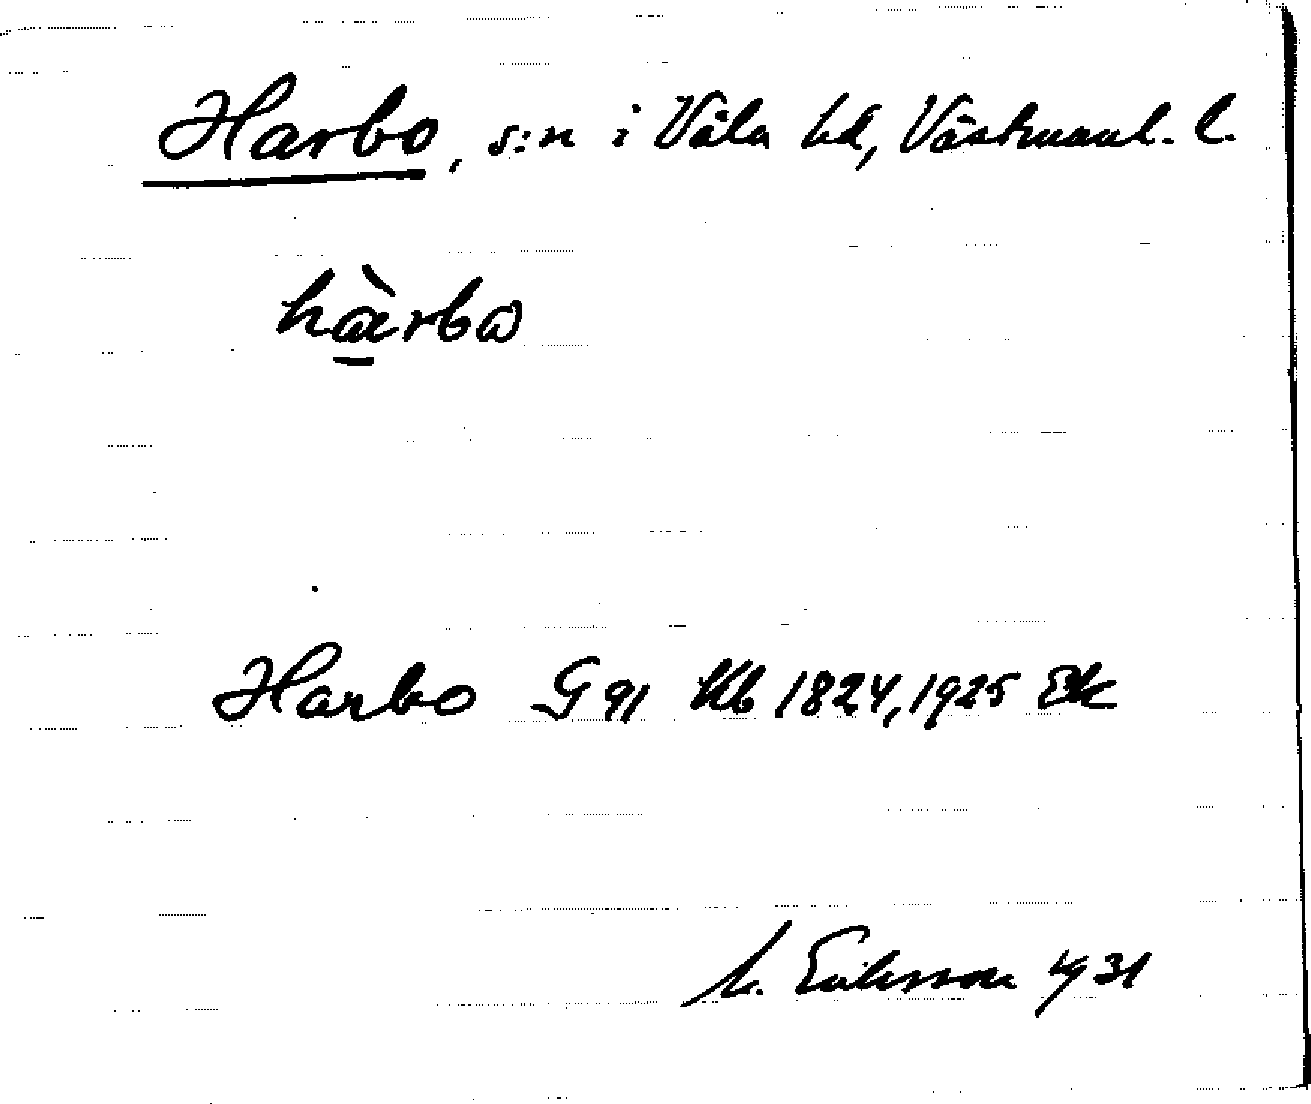 Harbo, s:n i Våla hd, Västmanl. l.
hàrbω
Harbo G 91 Kb 1824, 1925 Ek
M. Eriksson 1931